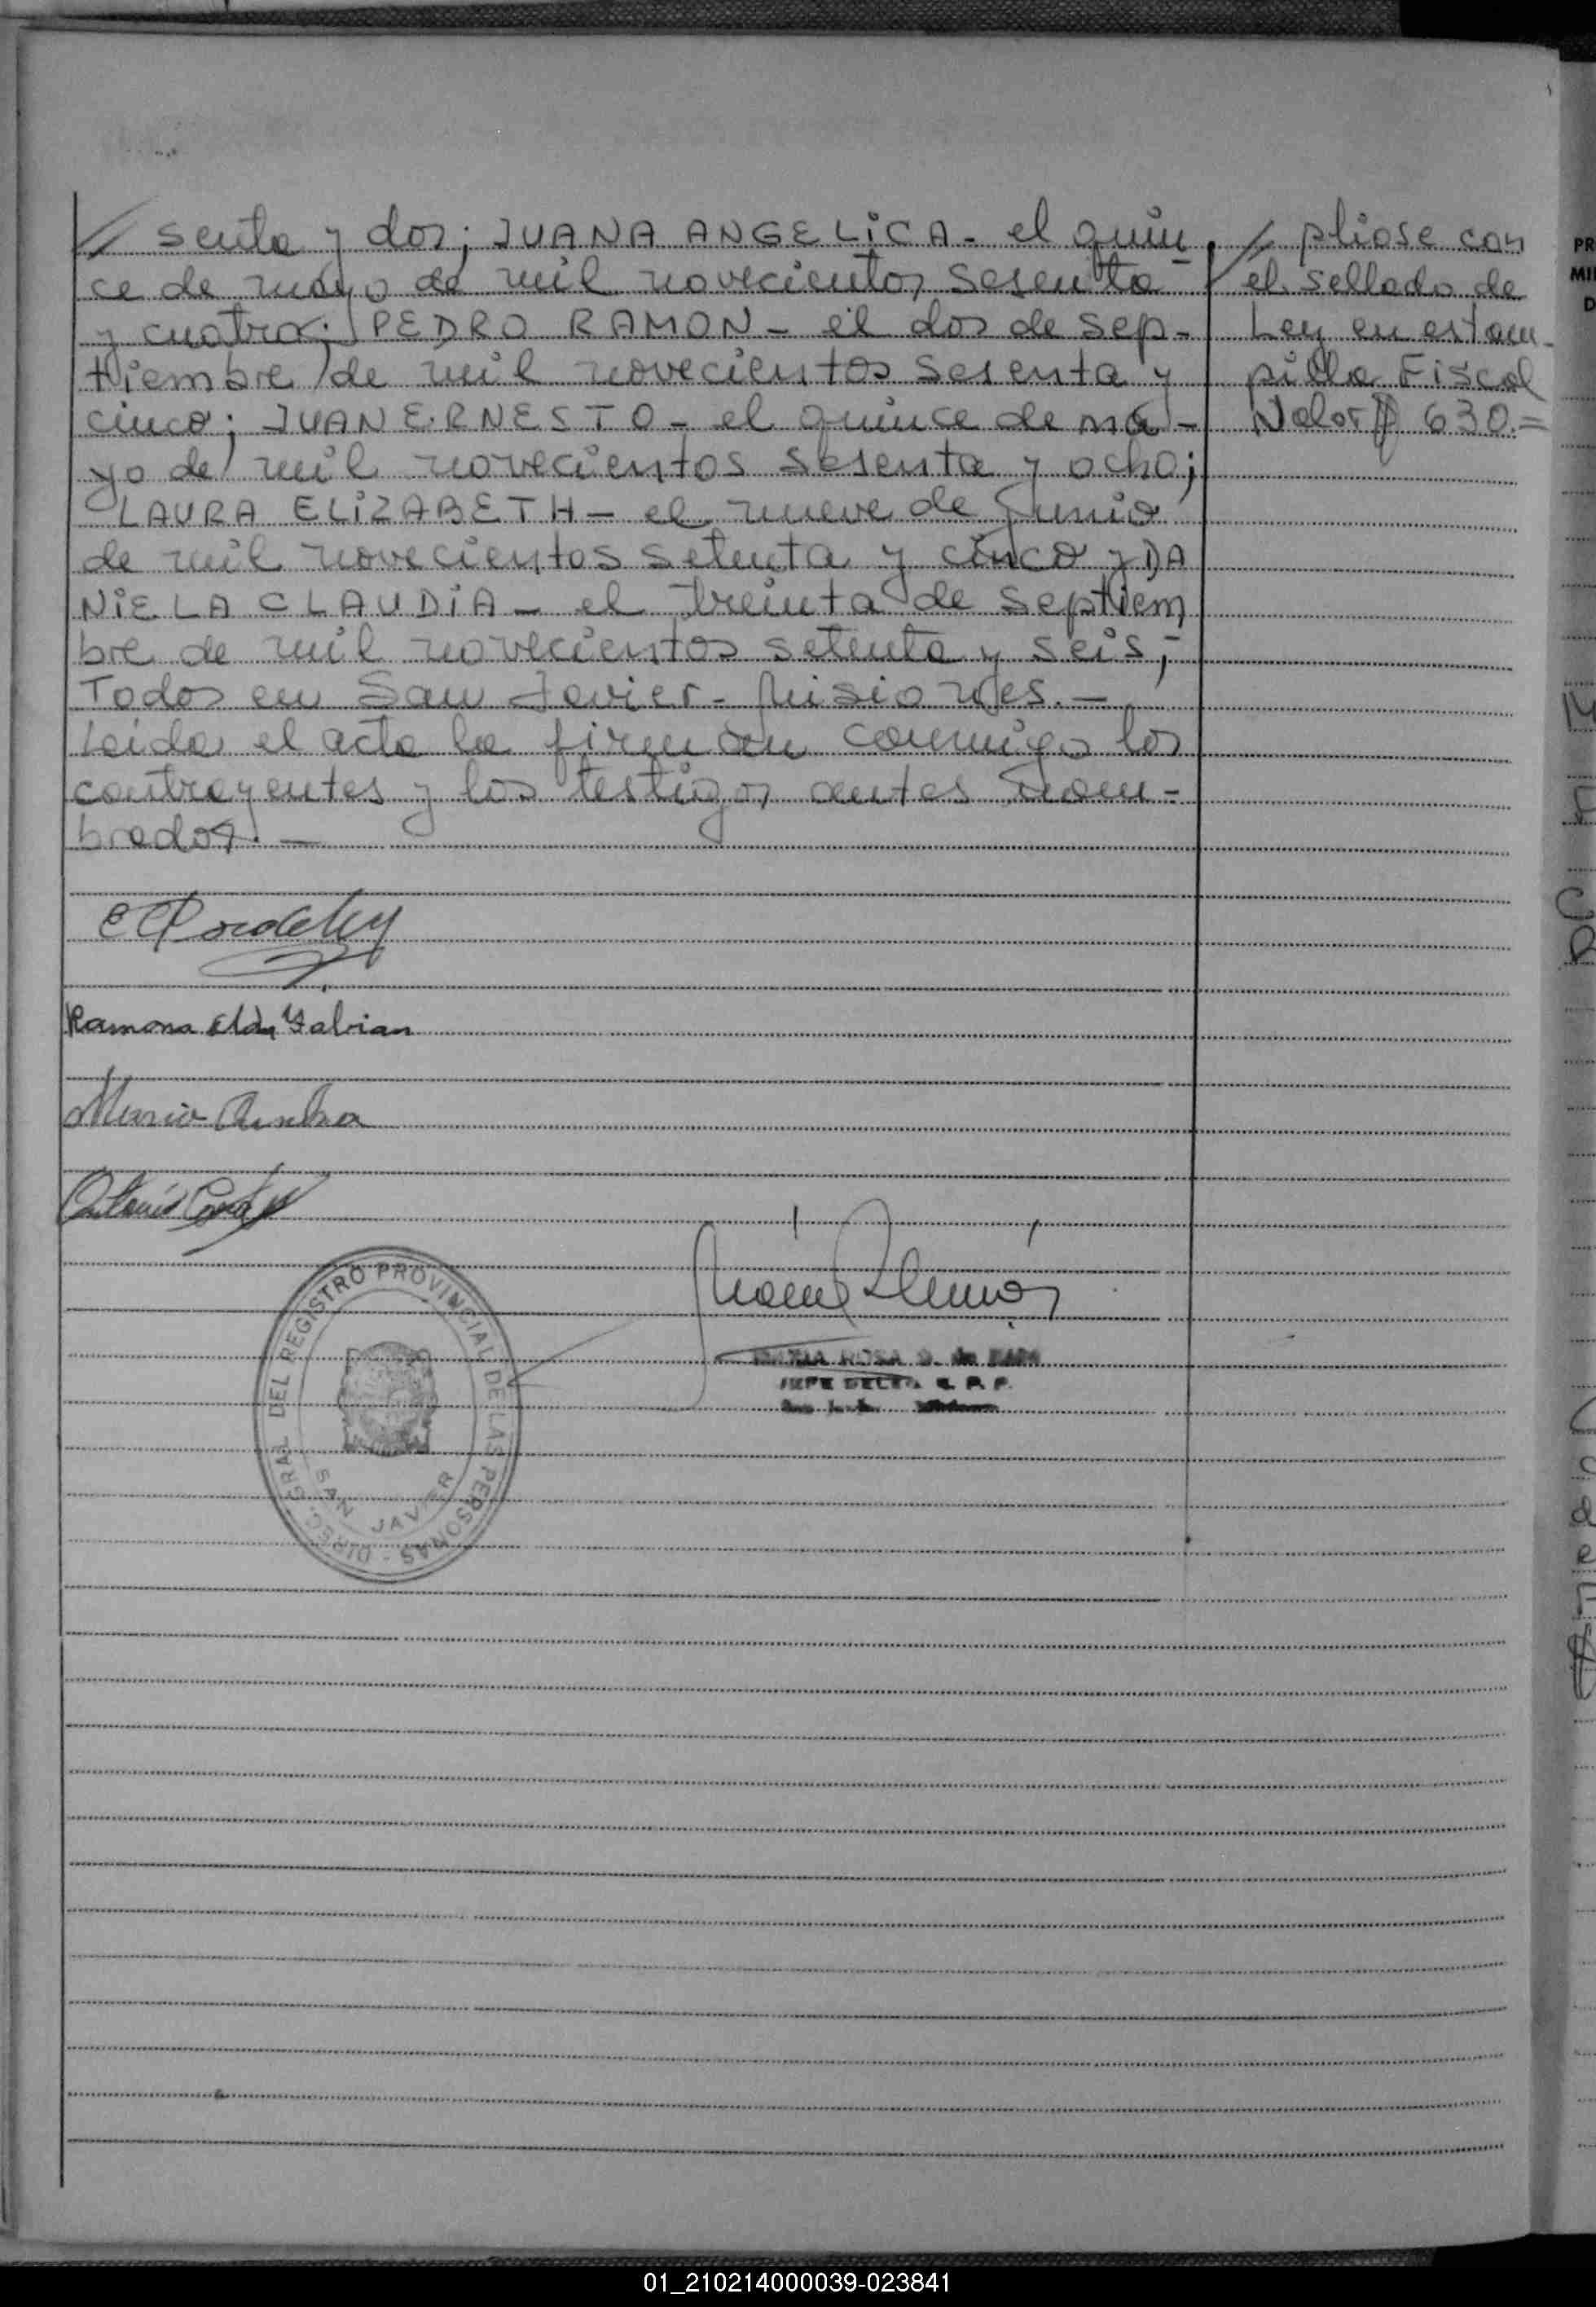 // senta y dos; JUANA ANGELICA - el quin
ce de mayo de mil novecientos sesenta
y cuatro; PEDRO RAMON - el dos de sep-
tiembre de mil novecientos sesenta y
cinco; JUAN ERNESTO - el quince de ma-
yo de mil novecientos sesenta y ocho;
LAURA ELIZABETH - el nueve de Junio
de mil novecientos setenta y cinco y DA
NIELA CLAUDIA - el treinta de septiem
bre de mil novecientos setenta y seis;-
Todos en San Javier - Misiones.-
Leída el acta la firman conmigo los
contrayentes y los testigos antes nom-
brados.-
// pliose con
el sellado de
Ley en estam-
pilla Fiscal
Valor $ 630.=
Ramona Elda
Mario
Antonio
DIREC. GRAL DEL REGISTRO PROVINCIAL DE LAS PERSONAS -
SAN JAVIER
MARIA ROSA
JEFE
PR
MI
D
01_210214000039-023841